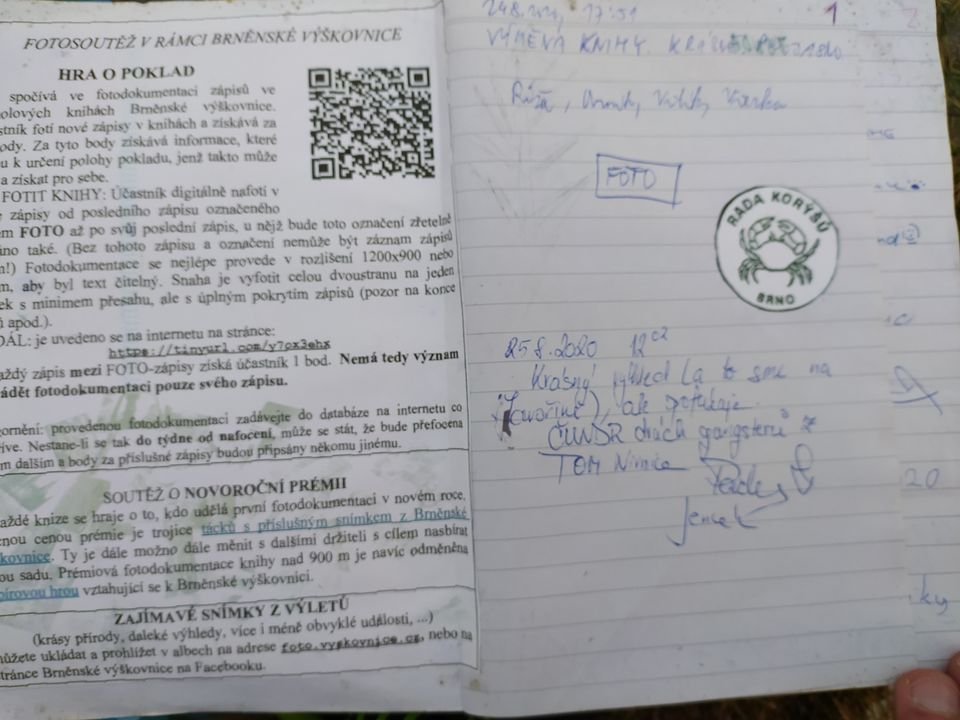 FOTOSOUTĚŽ V RÁMCI BRNĚNSKÉ VÝŠKOVNICE
HRA O POKLAD
spočívá ve fotodokumentaci zápisů ve
olových knihách Brněnské výškovnice.
stník fotí nové zápisy v knihách a získává za
ody. Za tyto body získává informace, které
u k určení polohy pokladu, jenž takto může
a získat pro sebe.
FOTIT KNIHY: Účastník digitálně nafotí v
zápisy od posledního zápisu označeného
em FOTO až po svůj poslední zápis, u nějž bude toto označení zřetelně
no také. (Bez tohoto zápisu a označení nemůže být záznam zápisů
n!) Fotodokumentace se nejlépe provede v rozlišení 1200x900 nebo
m, aby byl text čitelný. Snaha je vyfotit celou dvoustranu na jeden
ek s minimem přesahu, ale s úplným pokrytím zápisů (pozor na konce
ů apod.).
DÁL: je uvedeno se na internetu na stránce:
https://tinyurl.com/y7ox3ehx
aždý zápis mezi FOTO-zápisy získá účastník 1 bod. Nemá tedy význam
ádět fotodokumentaci pouze svého zápisu.
gornění: provedenou fotodokumentaci zadávejte do databáze na internetu co
říve. Nestane-li se tak do týdne od nafocení, může se stát, že bude přefocena
m dalším a body za příslušné zápisy budou připsány někomu jinému.
SOUTĚŽ O NOVOROČNÍ PRÉMII
aždé knize se hraje o to, kdo udělá první fotodokumentaci v novém roce.
enou cenou prémie je trojice tácků s příslušným snímkem z Brněnské
kovnice. Ty je dále možno dále měnit s dalšími držiteli s cílem nasbírat
ou sadu. Prémiová fotodokumentace knihy nad 900 m je navíc odměněna
pírovou hrou vztahující se k Brněnské výškovnici.
ZAJÍMAVÉ SNÍMKY Z VÝLETŮ
(krásy přírody, daleké výhledy, více i méně obvyklé události, ...)
můžete ukládat a prohlížet v albech na adrese foto.vyskovnice.cz, nebo na
tránce Brněnské výškovnice na Facebooku.
17:51
1
VÝMĚNA KNIHY.
FOTO
RADA KORÝŠŮ
BRNO
25.8.2020 12
Krásný výhled (a to sme na
Javořině), ale pofukuje.
ČUNDR gangsterů z
TOM
20
ky